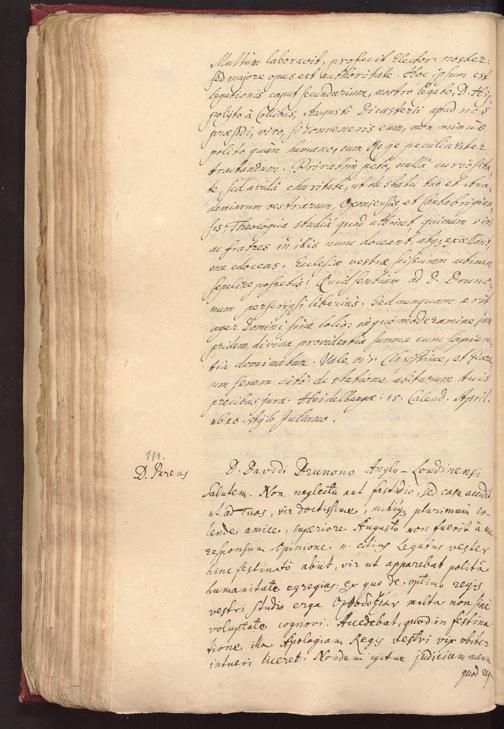 Multum laboravit, profecit Elector noster;
sed majore opus est authoritate. Hoc ipsum est
legationis caput secundarium, nostro legato, D. Hip-
polito à Collibus, Augusti Dicasterii apud nos
præsidi, viro, si conveneris eum, non minus
polito quàm humano, cum Rege peculiariter
tractandum. Privatim peto, nulla curiosita-
te, sed avida charitate, ut de statu tuo et Aca-
demiarum vestrarum, Oxoniensis et Cantabrigien-
sis Theologiæ studia quod attinet quinam viri
ac fratres in illis nunc doceant, atque excellant,
me edoceas. Ecclesiæ vestræ scissuram utinam
sepelire possetis! Quid sentiam ad D. Druno-
num perscripsi liberius. Sed nunquam erit
ager Domini sine lolio: in quo moderamine jam
pridem divina providentia summa cum sapien-
tia dominatur. Vale, vir Clarissime, et
senem citò de statione abiturum tuis
precibus juva. Heidelbergæ. 15. Calend. April.
stylo Juliano.
111.
D. Pareus
D. Davidi Drunono Anglo-Londinensi
Salutem. Non neglectu aut fastidio, sed casu accidit
ut ad Tuos, vir doctissime, mihique plurimum co-
lende amice, superiore Augusto non fuerit à me
responsum. Opinione n. citius Legatus vester
hinc festinatò abiit, vir ut apparebat politâ
humanitate egregius: Ex quo de optimo regis
vestri studio erga Orthodoxiam multa non sine
voluptate cognovi. Accedebat, quod in festina-
tione illa Apologiam Regis vestri vix obiter
intueri liceret. Nondum igitur judicium meum,
quod